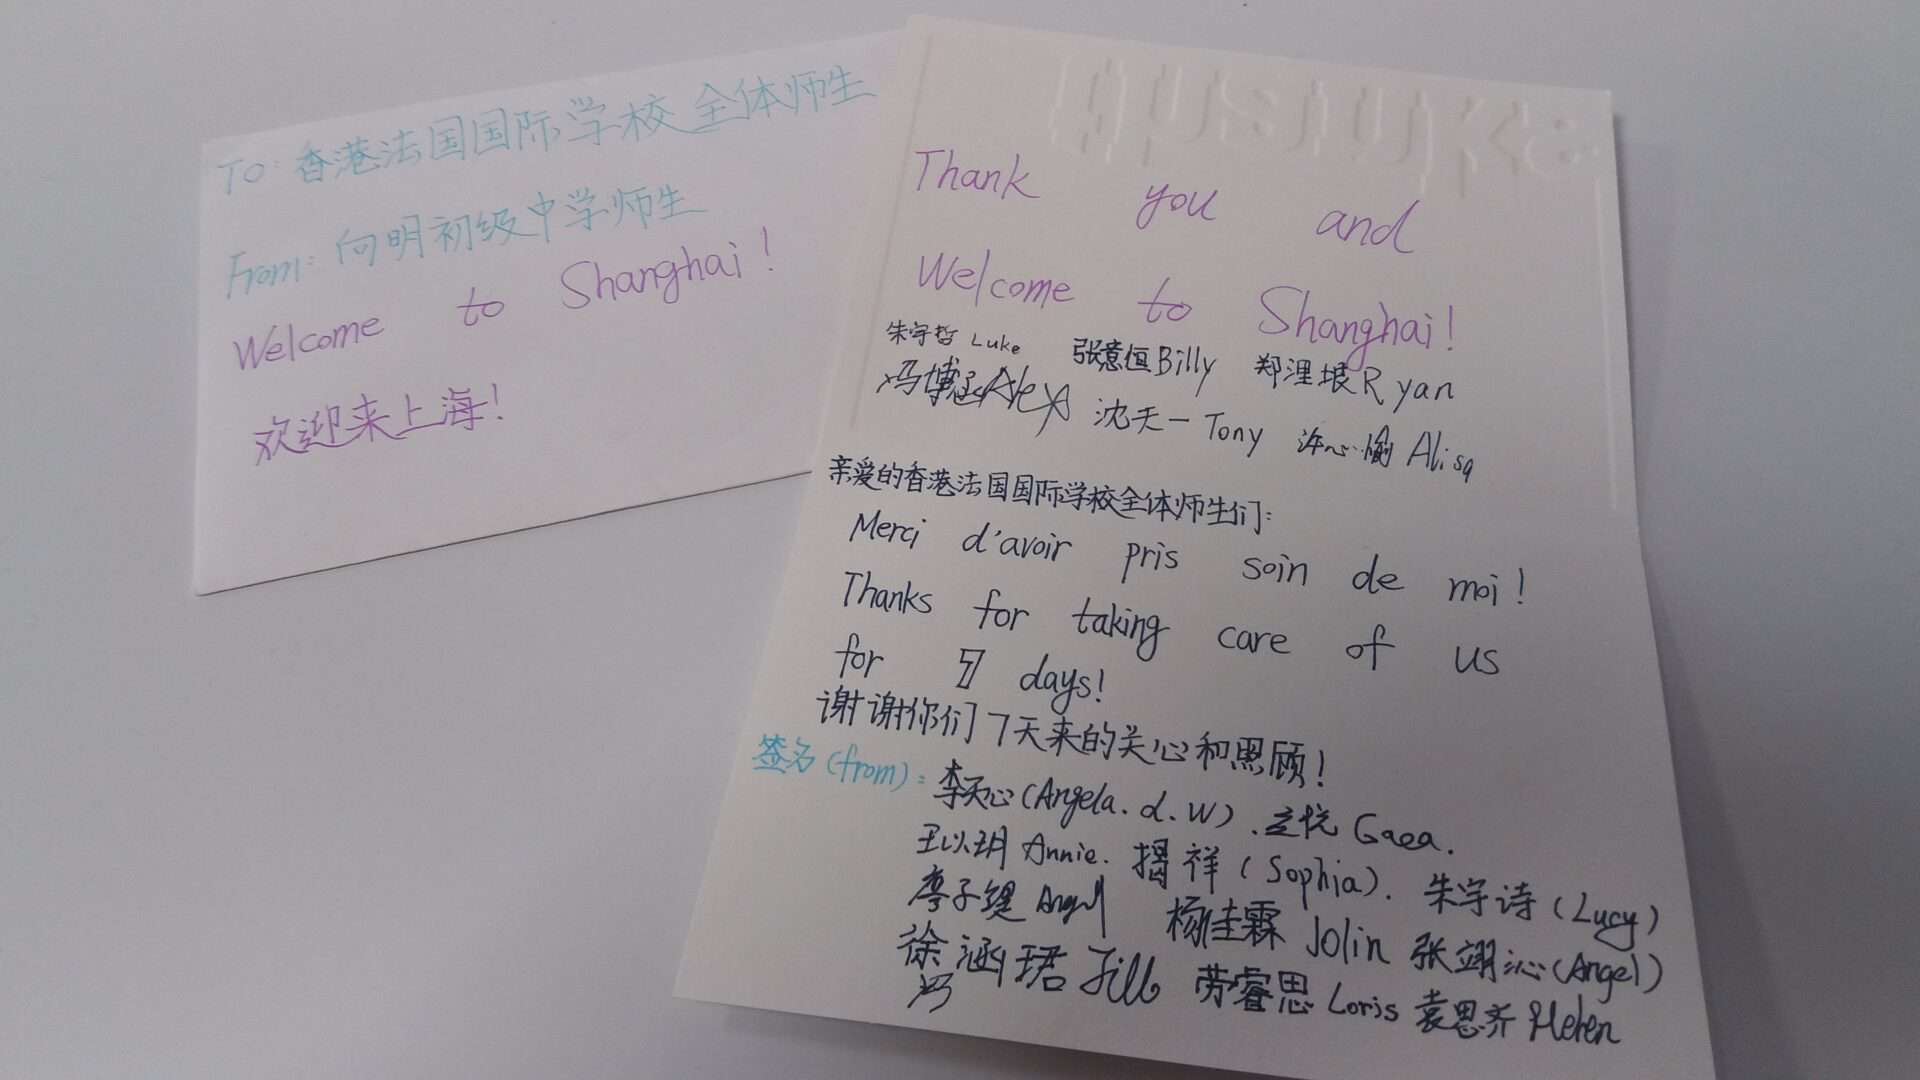 TO: 香港法国国际学校全体师生
From: 向明初级中学师生
Welcome to Shanghai!
欢迎来上海!
Thank you and
Welcome to Shanghai!
朱宇哲 Luke 张意恒 Billy 郑浬垠 Ryan
冯博涵 Alex 沈天一 Tony 许心愉 Alisa
亲爱的香港法国国际学校全体师生们:
Merci d'avoir pris soin de moi!
Thanks for taking care of us
for 7 days!
谢谢你们7天来的关心和照顾!
签名(from): 李天心(Angela.d.W). Gaea.
王以玥 Annie. 祥(Sophia). 朱宇诗(Lucy)
廖子键 Angel 杨佳霖 Jolin 张翊沁(Angel)
徐涵珺 Jill 劳睿思 Loris 袁思齐 Helen